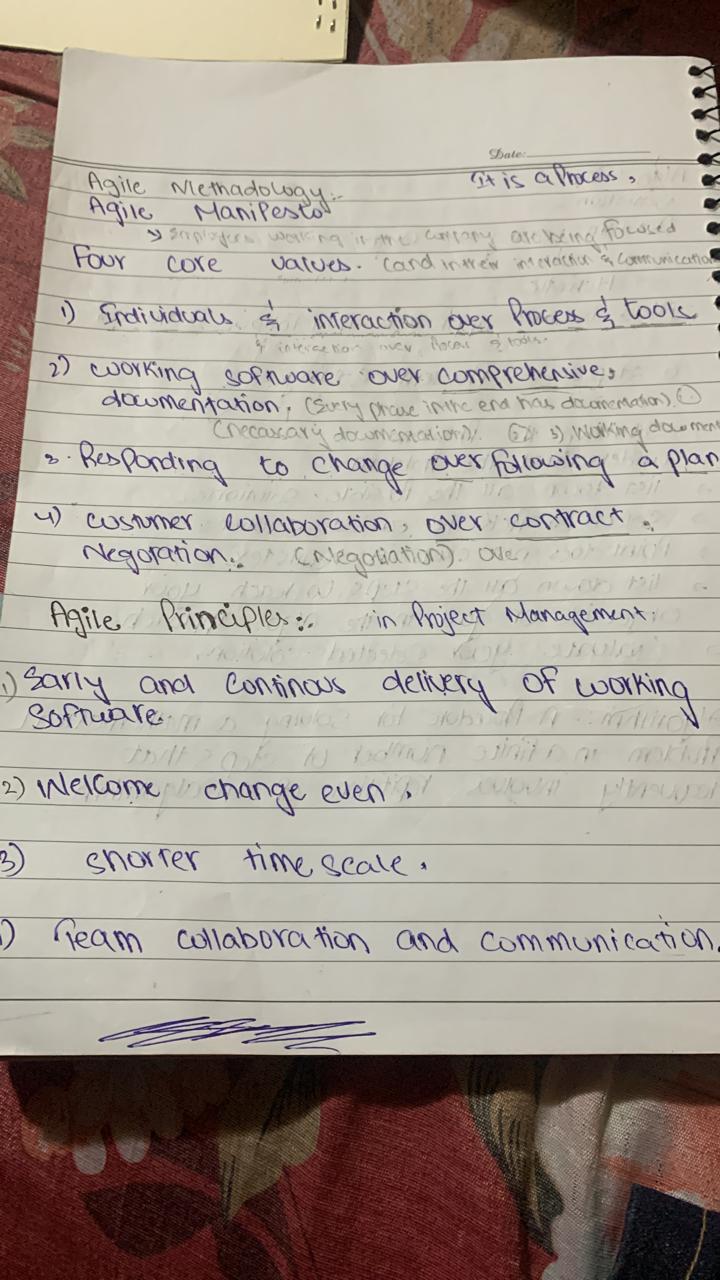 Date:
It is a Process,
Agile Methadology:-
Agile Manifesto
→ Employees working in the company are being focused
Four core values. (and in their interaction & communication
1) Individuals & interaction over Process & tools
& interaction over Process & tools.
2) working software over comprehensive,
documentation, (Every phase in the end has documentation).
(necassary documentation). 3) Working document
3. Responding to change over following a plan
4) custumer collaboration, over contract.
Negoration:. (Negotiation). over
Agile Principles:. in Project Management.
1) Early and Continous delivery of working
software.
2) Welcome change even.
3) shorter time scale.
) Team collaboration and communication.